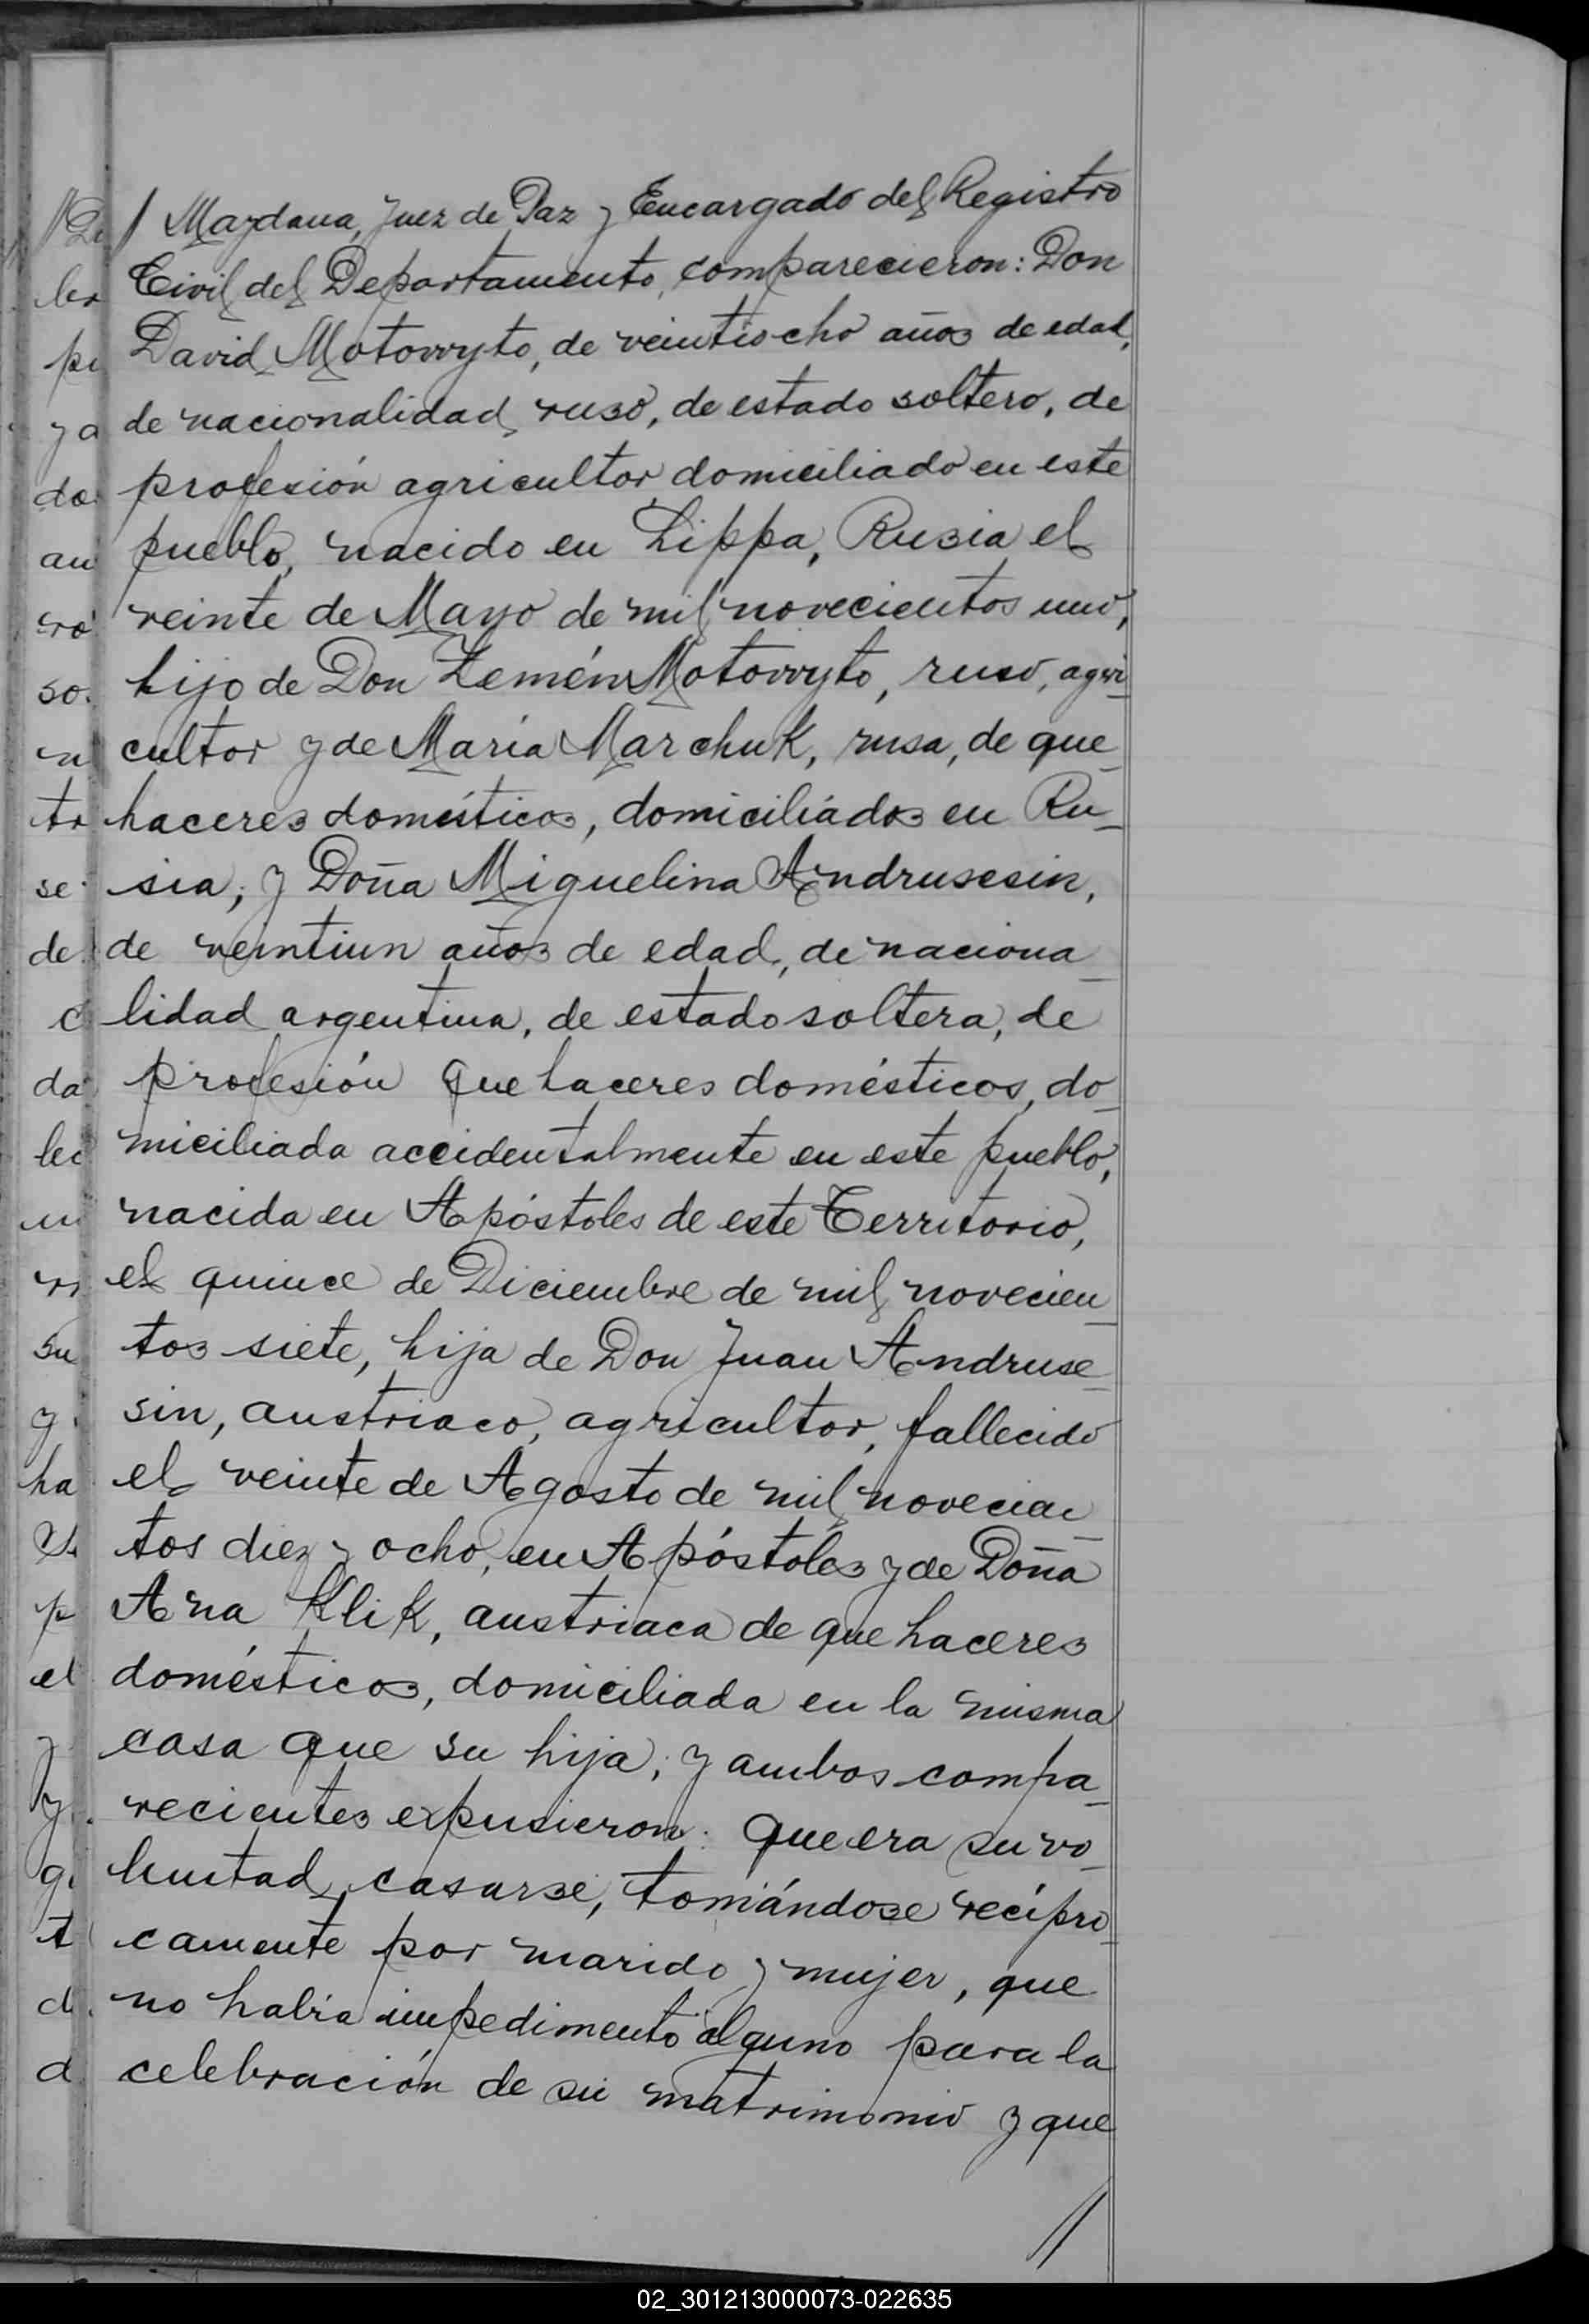 / Maydana, Juez de Paz y Encargado del Registro
Civil del Departamento, comparecieron: Don
David Motowyto, de veintiocho años de edad,
de nacionalidad ruso, de estado soltero, de
profesión agricultor domiciliado en este
pueblo, nacido en Lippa, Rusia el
veinte de Mayo de mil novecientos uno,
hijo de Don Zemén Motowyto, ruso, agri-
cultor y de María Marchuk, rusa, de que-
haceres domésticos, domiciliados en Ru-
sia; y Doña Miguelina Andrusesin,
de veintiun años de edad, de naciona-
lidad argentina, de estado soltera, de
profesión quehaceres domésticos, do-
miciliada accidentalmente en este pueblo,
nacida en Apóstoles de este Territorio,
el quince de Diciembre de mil novecien-
tos siete, hija de Don Juan Andruse-
sin, austriaco, agricultor, fallecido
el veinte de Agosto de mil novecien-
tos diez y ocho, en Apóstoles y de Doña
Ana Klik, austriaca de que haceres
domésticos, domiciliada en la misma
casa que su hija; y ambos compa-
recientes expusieron: que era su vo-
luntad casarse, tomándose recípro-
camente por marido y mujer, que
no había impedimento alguno para la
celebración de su matrimonio y que
//
02_301213000073-022635